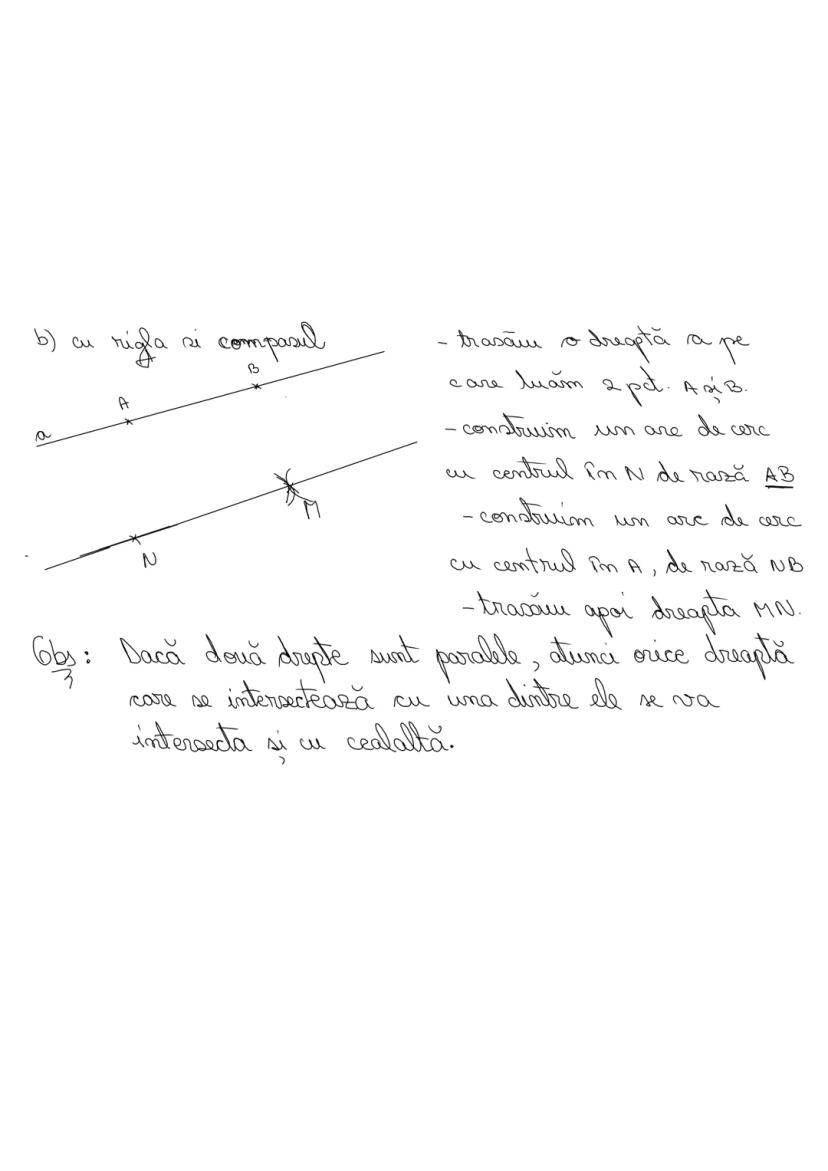 b) cu rigla si compasul
B
A
a
M
N
- trasăm o dreaptă a pe
care luăm 2 pct. A și B.
- construim un arc de cerc
cu centrul în N de rază AB
- construim un arc de cerc
cu centrul în A, de rază NB
- trasăm apoi dreapta MN.
Obs: Dacă două drepte sunt paralele, atunci orice dreaptă
care se intersectează cu una dintre ele se va
intersecta și cu cealaltă.